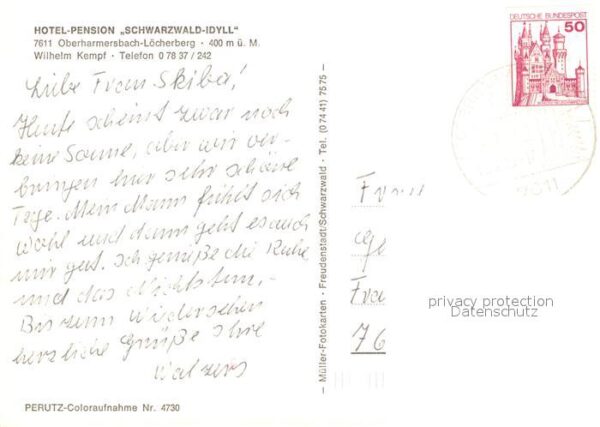 HOTEL-PENSION „SCHWARZWALD-IDYLL"
7611 Oberharmersbach-Löcherberg · 400 m ü. M.
Wilhelm Kempf · Telefon 0 78 37 / 242
Liebe Frau Skiba!
Heute scheint zwar noch
keine Sonne, aber wir ver-
bringen hier sehr schöne
Tage. Mein Mann fühlt sich
wohl und dann geht es auch
mir gut. Ich genieße die Ruhe
und das Nichtstun.-
Bis zum Wiedersehen
herzliche Grüße Ihre
Walzers
PERUTZ-Coloraufnahme Nr. 4730
— Müller-Fotokarten · Freudenstadt/Schwarzwald · Tel. (0 74 41) 75 75 —
DEUTSCHE BUNDESPOST
50
7611
Fra
76
privacy protection
Datenschutz